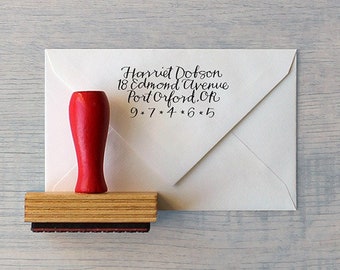 Harriet Dobson
18 Edmond Avenue
Port Orford, OR
9 • 7 • 4 • 6 • 5